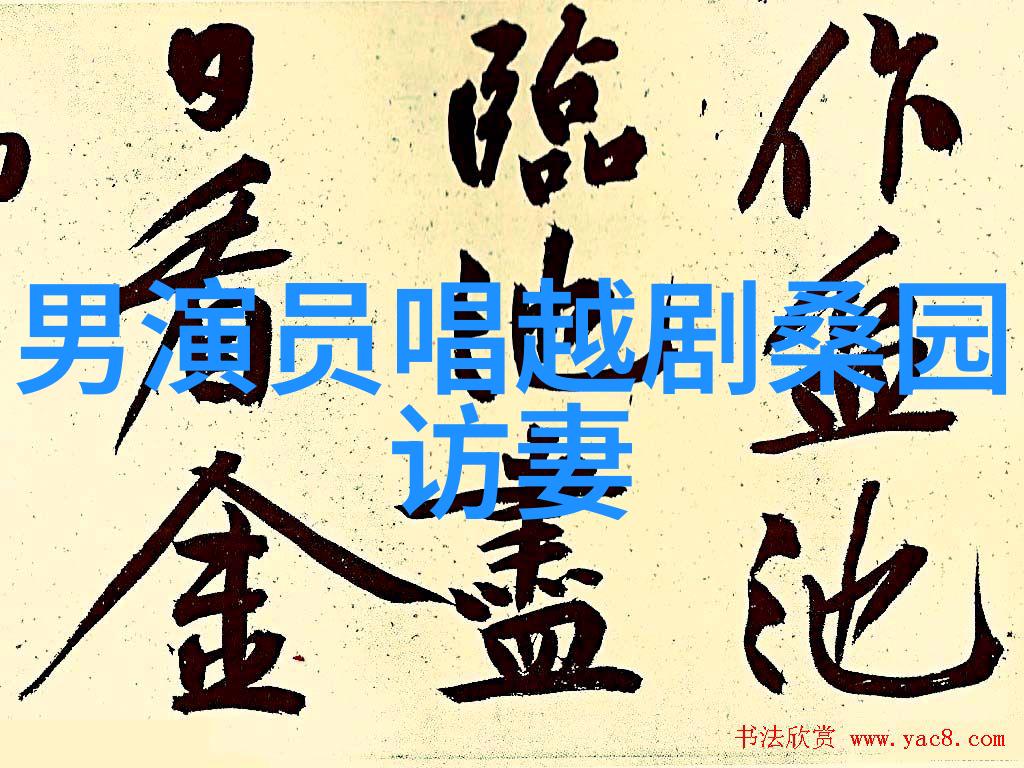 作盆池
臨
盡
日看金
男演员唱越剧桑园
访妻
书法欣赏 www.yac8.com